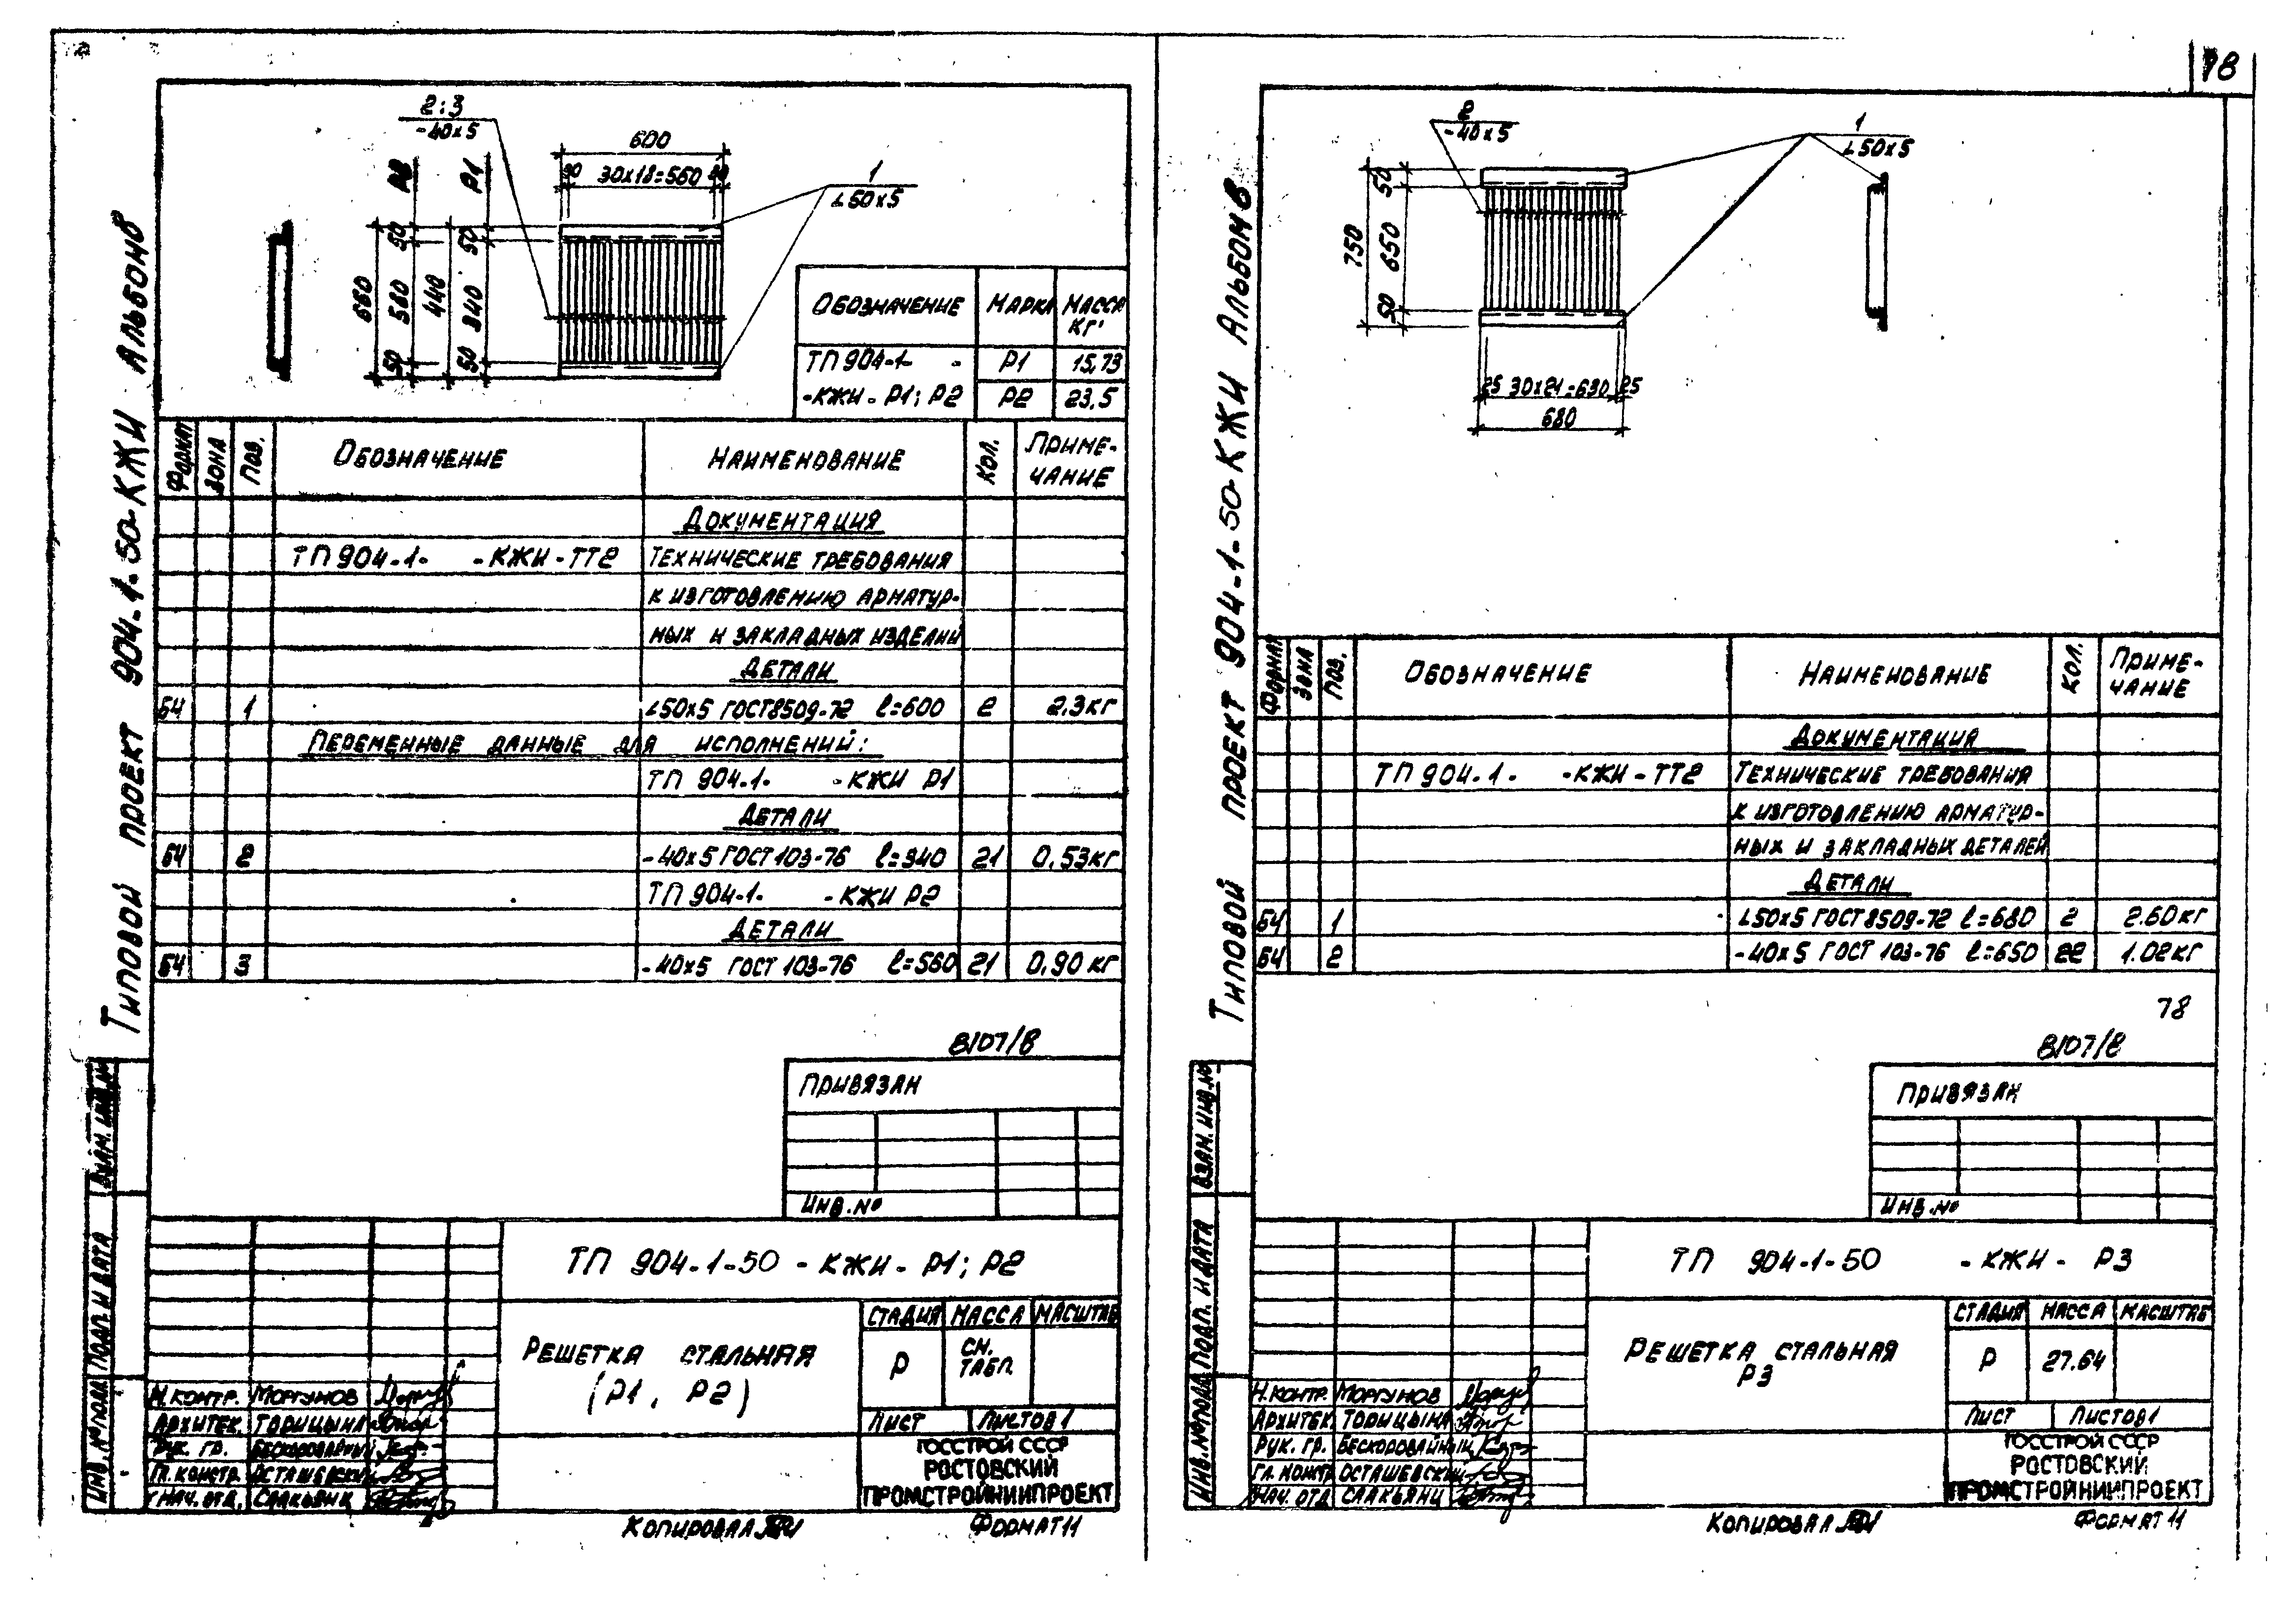 78
Типовой проект 904-1-50-КЖИ Альбом 8
2;3
-40х5
600
30х18=560
1
∟50х5
Р2
Р1
660
50
560
50
440
50
340
50
Обозначение Марка Масса кг
ТП 904-1- - Р1 15,73
-КЖИ-Р1; Р2 Р2 23,5
Формат Зона Поз. Обозначение Наименование Кол. Приме-
чание
Документация
ТП 904-1- -КЖИ-ТТ2 Технические требования
к изготовлению арматур-
ных и закладных изделий
Детали
БЧ 1 ∟50х5 ГОСТ 8509-72 ℓ=600 2 2.3кг
Переменные данные для исполнений:
ТП 904-1- -КЖИ Р1
Детали
БЧ 2 -40х5 ГОСТ 103-76 ℓ=340 21 0,53кг
ТП 904-1- -КЖИ Р2
Детали
БЧ 3 -40х5 ГОСТ 103-76 ℓ=560 21 0,90 кг
8107/8
Привязан
Инв.№
Взам. инв.№
Подп. и дата
Инв.№ подл.
ТП 904-1-50 -КЖИ- Р1; Р2
Решетка стальная
(Р1, Р2)
Стадия Масса Масштаб
Р См. табл.
Лист Листов 1
Н.контр. Моргунов
Архитек. Торицына
Рук. гр. Бескоровайный
Гл. констр. Осташевский
Нач. отд. Слакьянц
Госстрой СССР
Ростовский
Промстройниипроект
Копировал
Формат 11
Типовой проект 904-1-50-КЖИ Альбом 8
2
-40х5
1
∟50х5
750
50
650
50
25 30х21=630 25
680
Формат Зона Поз. Обозначение Наименование Кол. Приме-
чание
Документация
ТП 904-1- -КЖИ-ТТ2 Технические требования
к изготовлению арматур-
ных и закладных деталей
Детали
БЧ 1 ∟50х5 ГОСТ 8509-72 ℓ=680 2 2.60кг
БЧ 2 -40х5 ГОСТ 103-76 ℓ=650 22 1.02кг
78
8107/8
Привязан
Инв.№
Взам. инв.№
Подп. и дата
Инв.№ подл.
ТП 904-1-50 -КЖИ- Р3
Решетка стальная
Р3
Стадия Масса Масштаб
Р 27.64
Лист Листов 1
Н.контр. Моргунов
Архитек. Торицына
Рук. гр. Бескоровайный
Гл. констр. Осташевский
Нач. отд. Слакьянц
Госстрой СССР
Ростовский
Промстройниипроект
Копировал
Формат 11